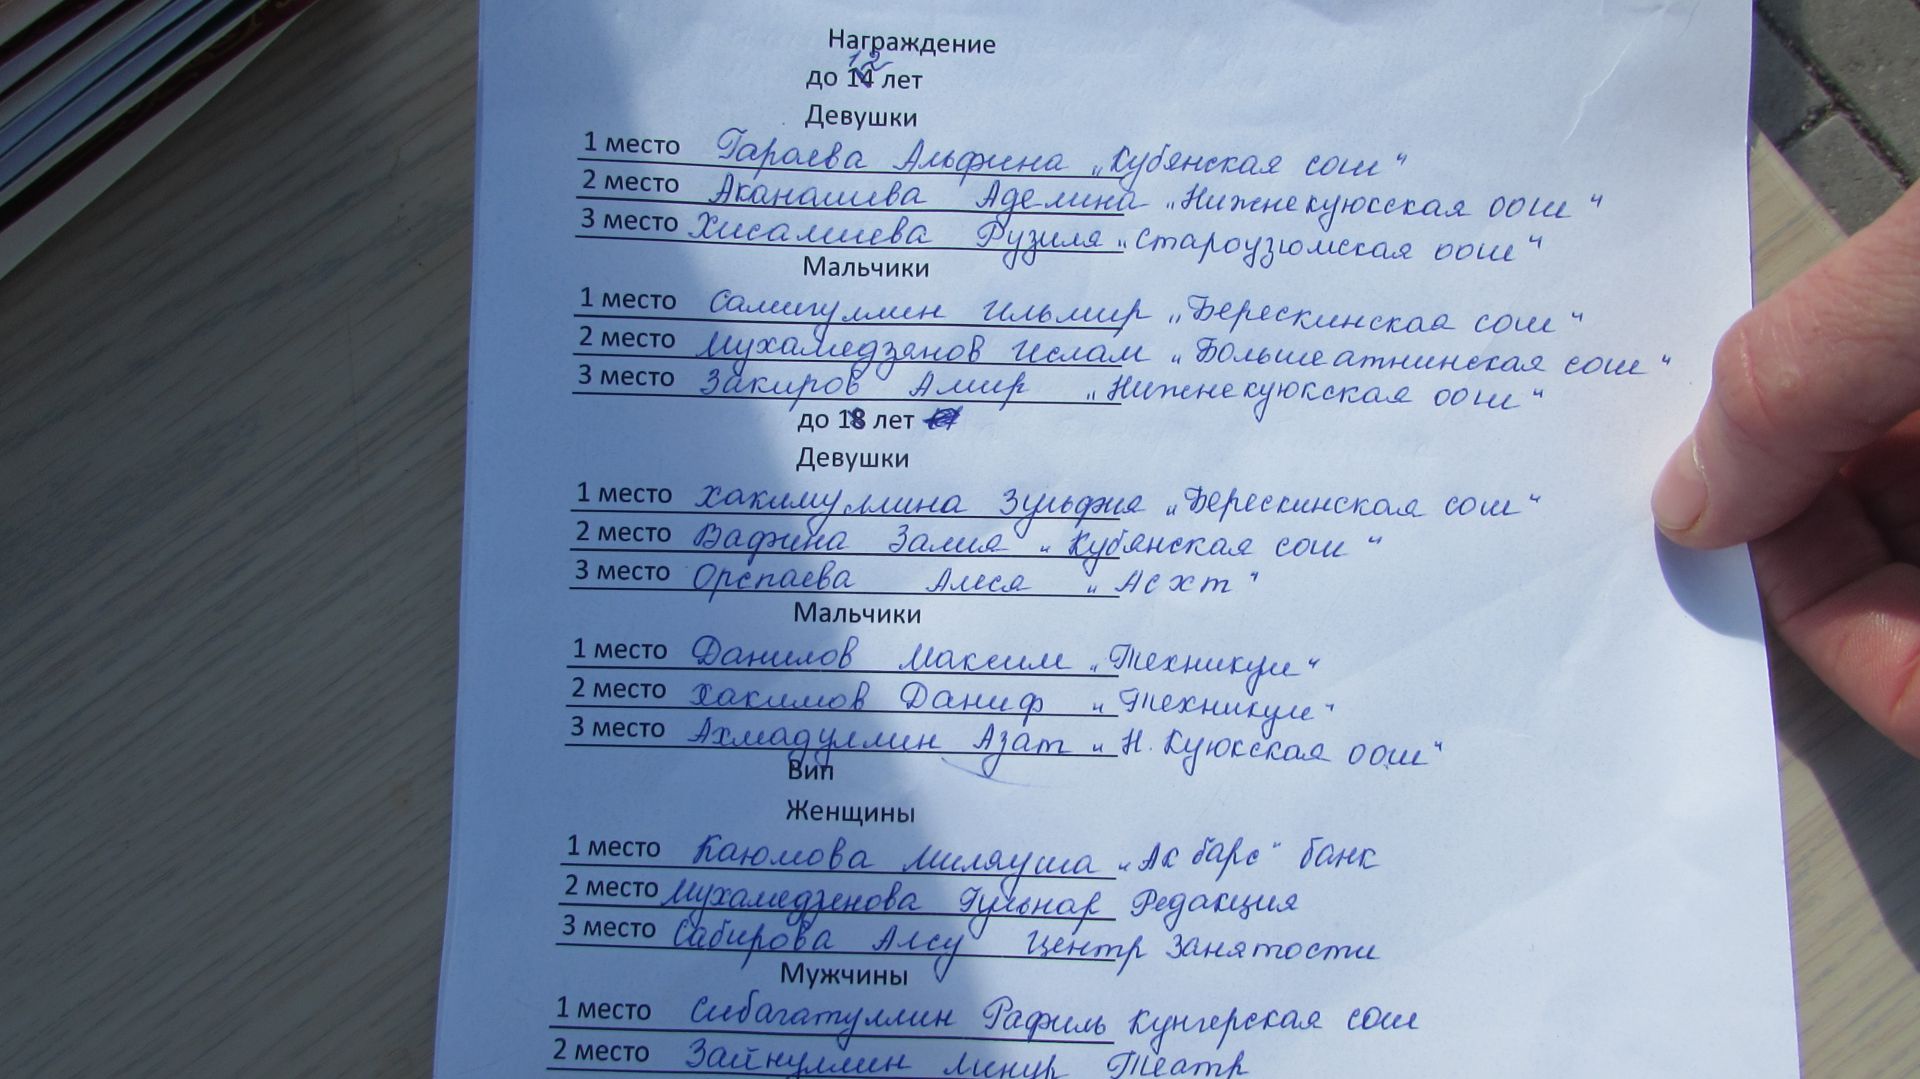 Награждение
до 12 лет
Девушки
1 место Гараева Альфина „Кубянская сош"
2 место Аканашева Аделина „Нижнекуюкская оош"
3 место Хисамиева Рузиля „Староузюмская оош"
Мальчики
1 место Самигуллин Ильмир „Берескинская сош"
2 место Мухамедзянов Ислам „Большеатнинская сош"
3 место Закиров Амир „Нижнекуюкская оош"
до 18 лет
Девушки
1 место Хакимуллина Зульфия „Берескинская сош"
2 место Вафина Залия „Кубянская сош"
3 место Ался „Асхт"
Мальчики
1 место Данилов Максим „Техникум"
2 место Хакимов Даниф „Техникум"
3 место Ахмадуллин Азат „Н. Куюкская оош"
Вип
Женщины
1 место Каюмова Миляуша „Ак барс" банк
2 место Мухамедзенова Гульнар Редакция
3 место Сабирова Алсу Центр Занятости
Мужчины
1 место Сибагатуллин Рафиль Кунгерская сош
2 место Зайнуллин Линур Театр